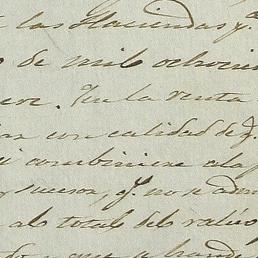 las Haciendas y.
de mil ochocien
eve. En la venta
con calidad de q.
combiniere a la
y sucesor, q. no se adm
al total del valor